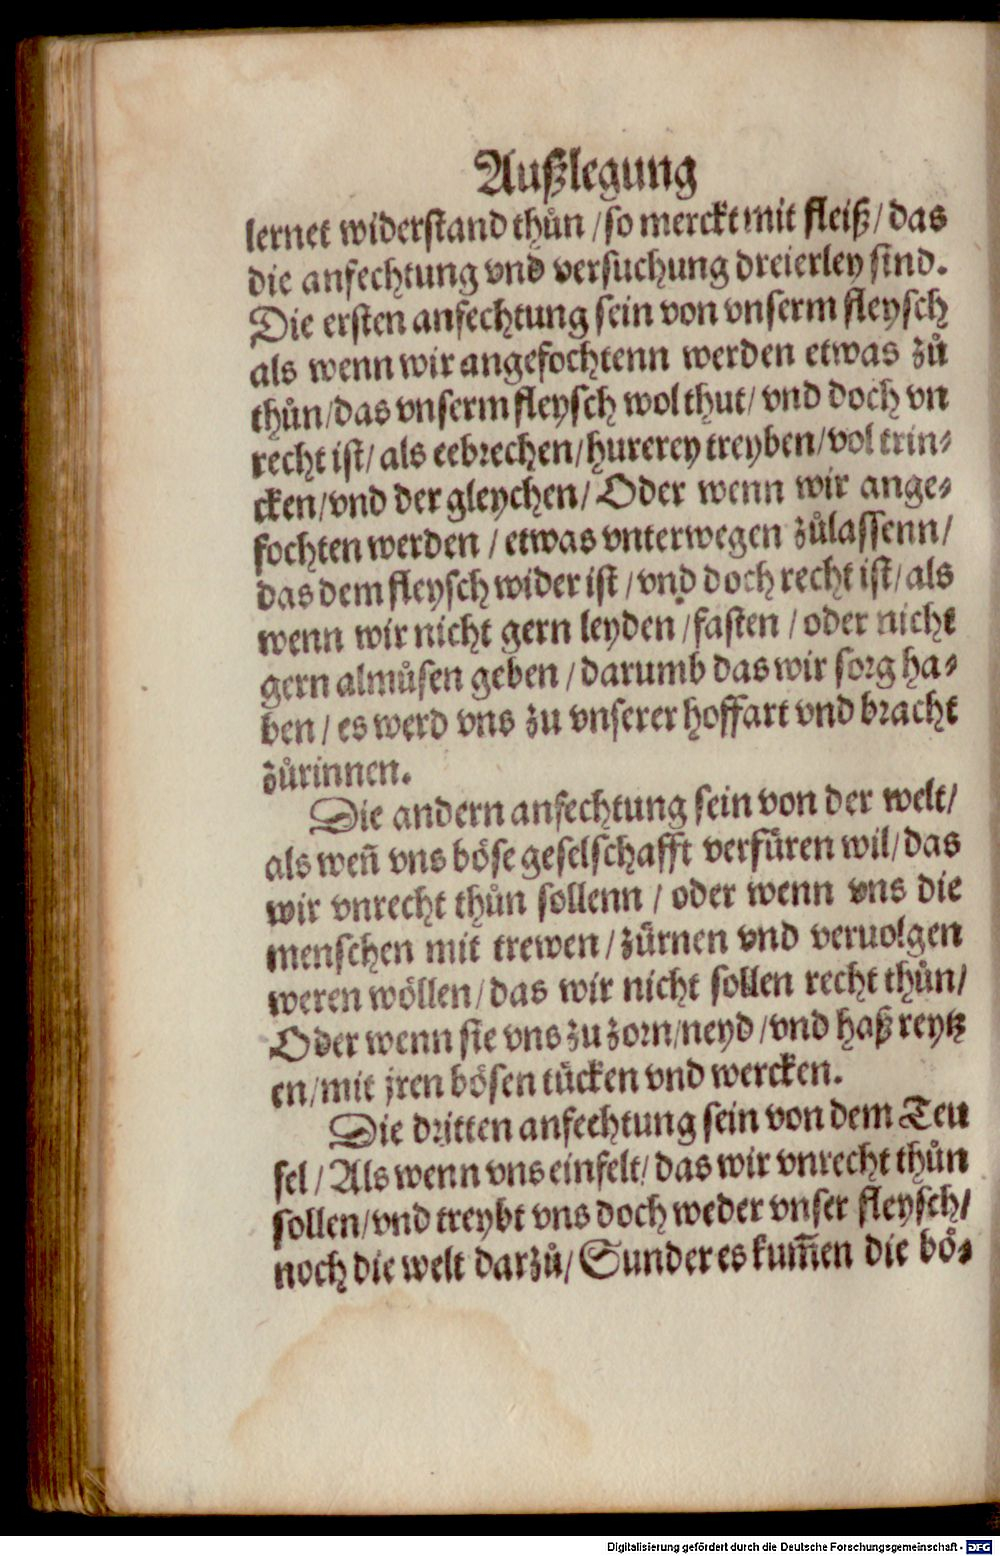 Außlegung
lernet widerstand thůn / so merckt mit fleiß / das
die anfechtung vnd versuchung dreierley sind.
Die ersten anfechtung sein von vnserm fleysch
als wenn wir angefochtenn werden etwas zů
thůn / das vnserm fleysch wol thut / vnd doch vn
recht ist / als eebrechen / hurerey treyben / vol trin⸗
cken / vnd der gleychen / Oder wenn wir ange⸗
fochten werden / etwas vnterwegen zůlassenn /
das dem fleysch wider ist / vnd doch recht ist / als
wenn wir nicht gern leyden / fasten / oder nicht
gern almůsen geben / darumb das wir sorg ha⸗
ben / es werd vns zu vnserer hoffart vnd bracht
zůrinnen.
Die andern anfechtung sein von der welt /
als wen̄ vns böse geselschafft verfüren wil / das
wir vnrecht thůn sollenn / oder wenn vns die
menschen mit trewen / zürnen vnd veruolgen
weren wöllen / das wir nicht sollen recht thůn /
Oder wenn sie vns zu zorn / neyd / vnd haß reytz
en / mit jren bösen tücken vnd wercken.
Die dritten anfechtung sein von dem Teu
fel / Als wenn vns einfelt / das wir vnrecht thůn
sollen / vnd treybt vns doch weder vnser fleysch /
noch die welt darzů / Sunder es kum̄en die bö⸗
Digitalisierung gefördert durch die Deutsche Forschungsgemeinschaft - DFG